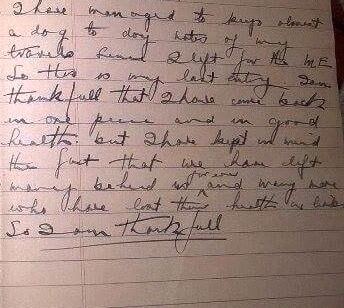 I have managed to keep almost
a day to day notes of my
travels since I left for the M.E.
So this is my last entry. I am
thankfull that I have come back
in one piece and in good
health. but I have kept in mind
the fact that we have left
many behind us for ever and many more
who have lost their health or
So I am thankfull